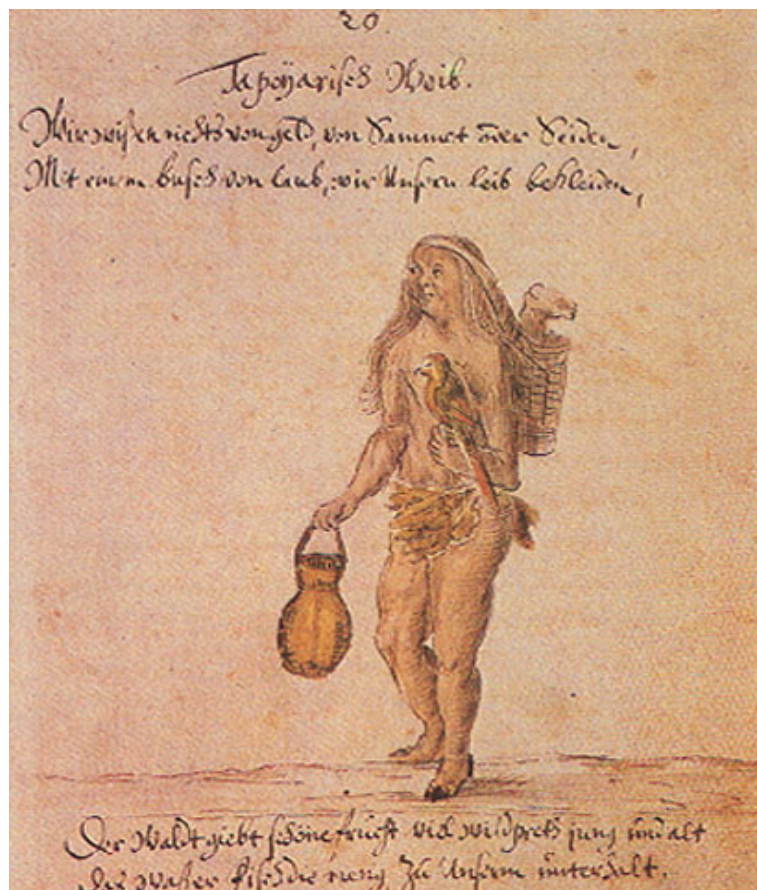 20.
Tapoÿarisch Weib.
Wir wissen nichts von gelt, von Sammet oder Seiden,
Mit einem busch von laub, wir Unsern leib bekleiden,
Der Waldt giebt schöne frucht viel wildpreth jung und alt
Das Wasser fisch die meng zu Unserm unterhalt.